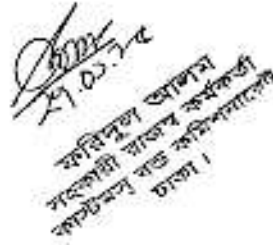 ২৭.০১.১৫
ফরিদুল আলম
সহকারী রাজস্ব কর্মকর্তা
কাস্টমস বন্ড কমিশনারেট
ঢাকা।